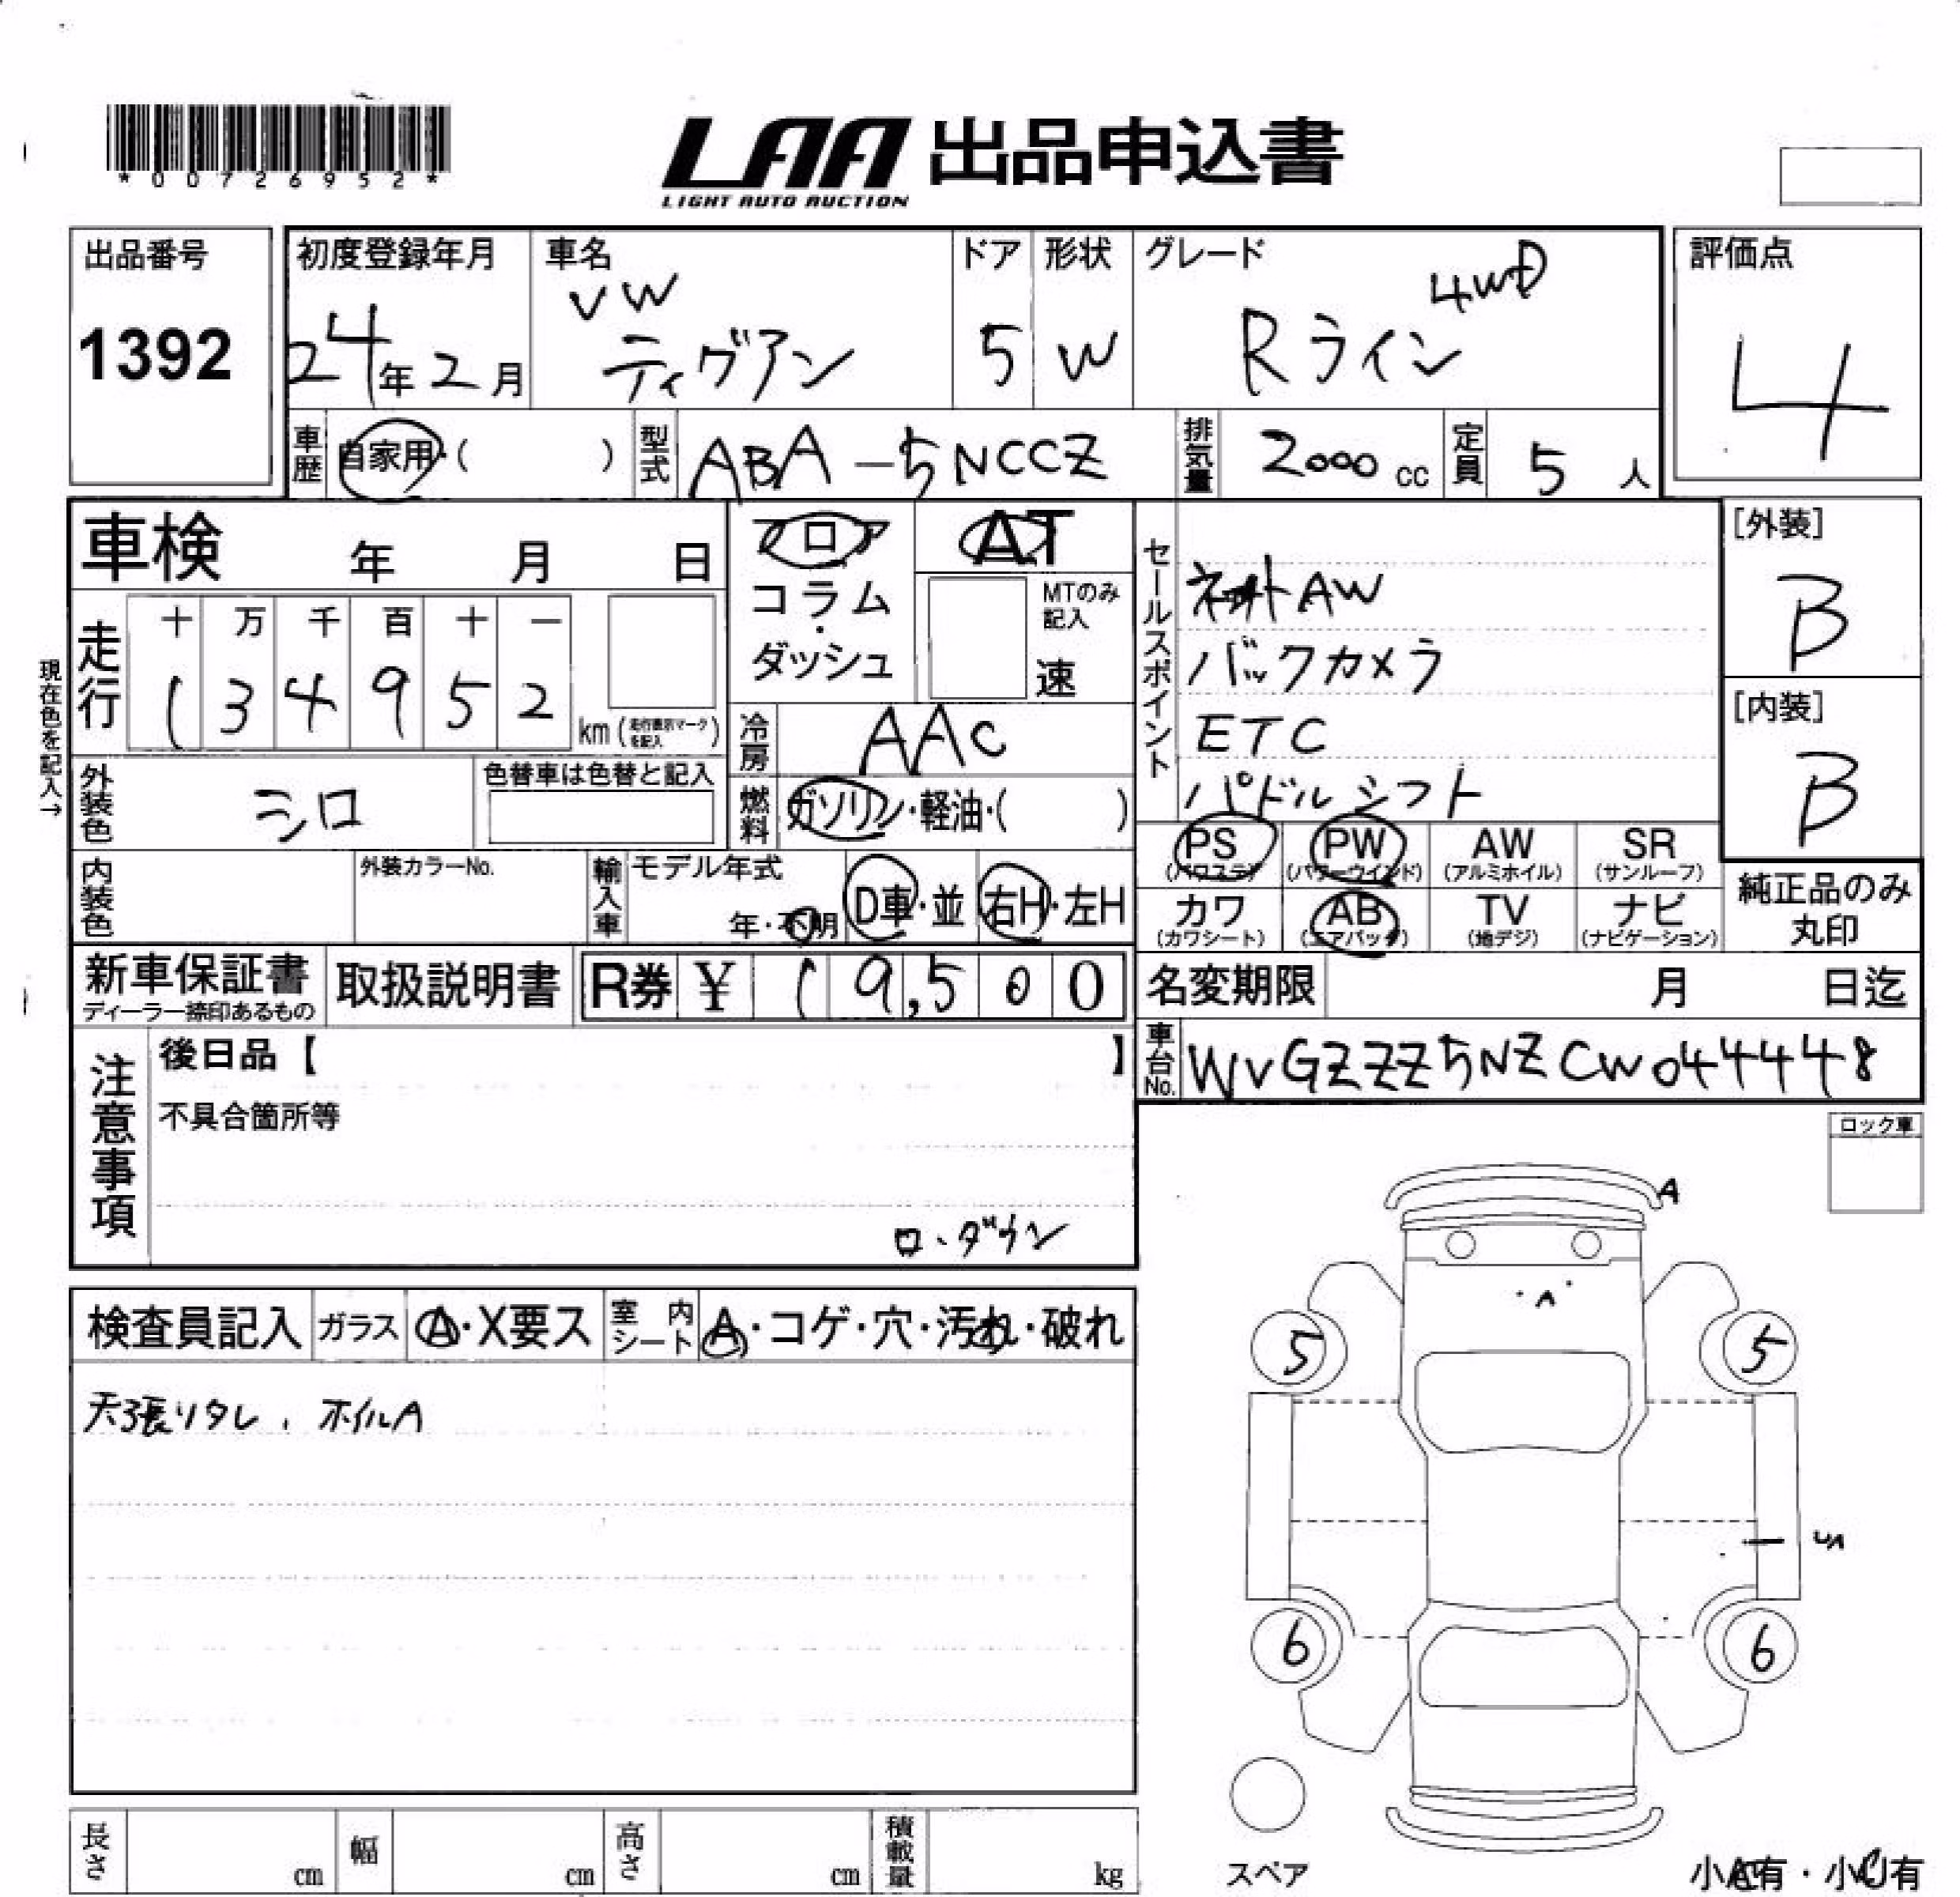 *00726952*
LAA 出品申込書
LIGHT AUTO AUCTION
出品番号
1392
初度登録年月
24年2月
車名
VW
ティグアン
ドア
5
形状
W
グレード
4WD
Rライン
評価点
4
車歴
自家用・( )
型式
ABA-5NCCZ
排気量
2000 cc
定員
5 人
車検 年 月 日
フロア
コラム
・
ダッシュ
AT
MTのみ
記入
速
現在色を記入→
走行
十 万 千 百 十 一
1 3 4 9 5 2
km ( )
外装色
シロ
色替車は色替と記入
冷房
AAC
燃料
ガソリン・軽油・( )
内装色
外装カラーNo.
輸入車
モデル年式
年・不明
D車・並
右H・左H
セールスポイント
AW
バックカメラ
ETC
パドルシフト
[外装]
B
[内装]
B
PS
(パワステ)
PW
(パワーウインド)
AW
(アルミホイル)
SR
(サンルーフ)
カワ
(カワシート)
AB
(エアバッグ)
TV
(地デジ)
ナビ
(ナビゲーション)
純正品のみ
丸印
新車保証書
ディーラー捺印あるもの
取扱説明書
R券 ¥ 19,500
名変期限 月 日迄
車台No.
WVGZZZ5NZCW044448
注意事項
後日品【 】
不具合箇所等
ロ・ダウン
ロック車
検査員記入
ガラス
A・X要ス
室内
シート
A・コゲ・穴・汚れ・破れ
天張りタレ、ホイルA
A
A
5
5
S
6
6
スペア
長さ cm
幅 cm
高さ cm
積載量 kg
小A有・小U有